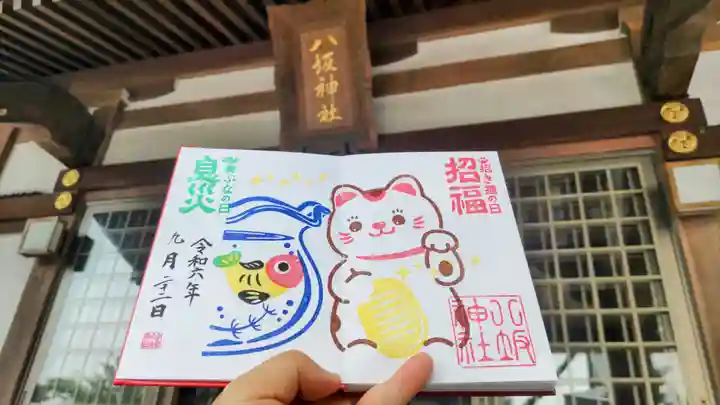 八坂神社
招き猫の日
招福
黄ぶなの日
息災
令和六年
九月二十二日
八坂
神社